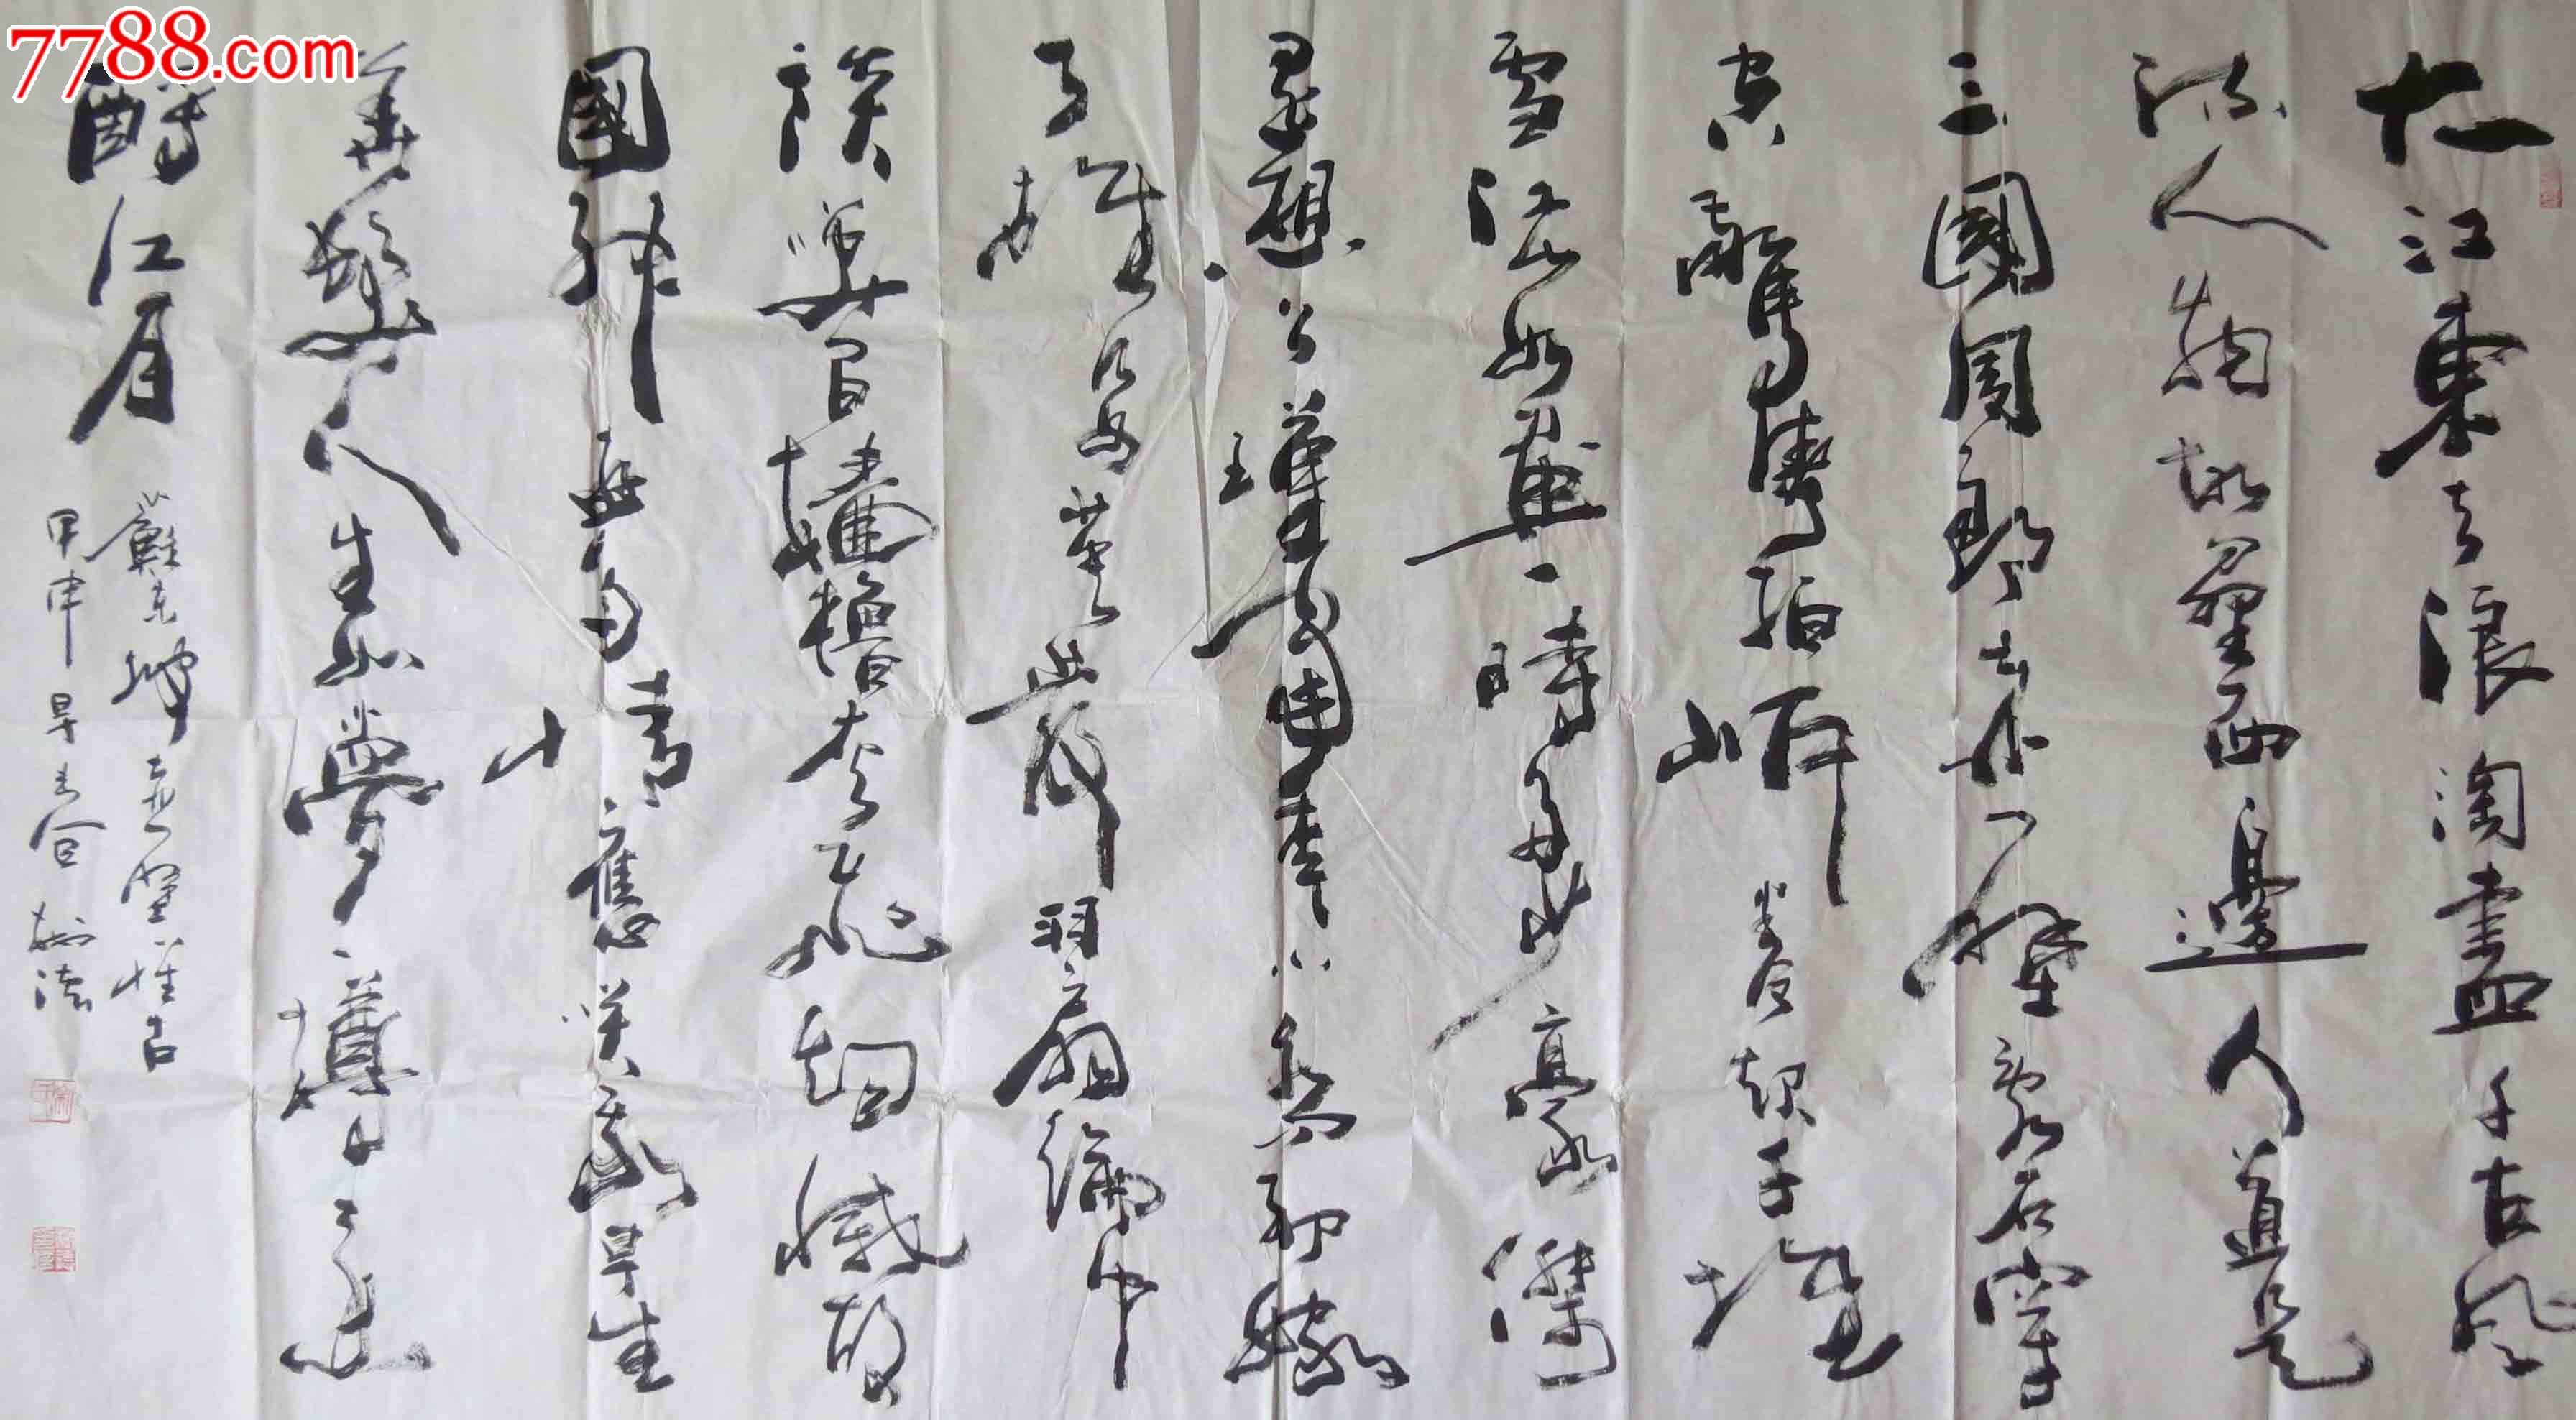 大江東去浪淘盡千古風
流人物故壘西邊人道是
三國周郎赤壁亂石穿
空驚濤拍岸卷起千堆
雪江山如畫一時多少豪傑
遙想公瑾當年小喬初嫁
了雄姿英發羽扇綸巾
談笑間檣櫓灰飛烟滅故
國神遊多情應笑我早生
華髮人生如夢一樽還
酹江月
蘇東坡赤壁懷古
甲申
7788.com